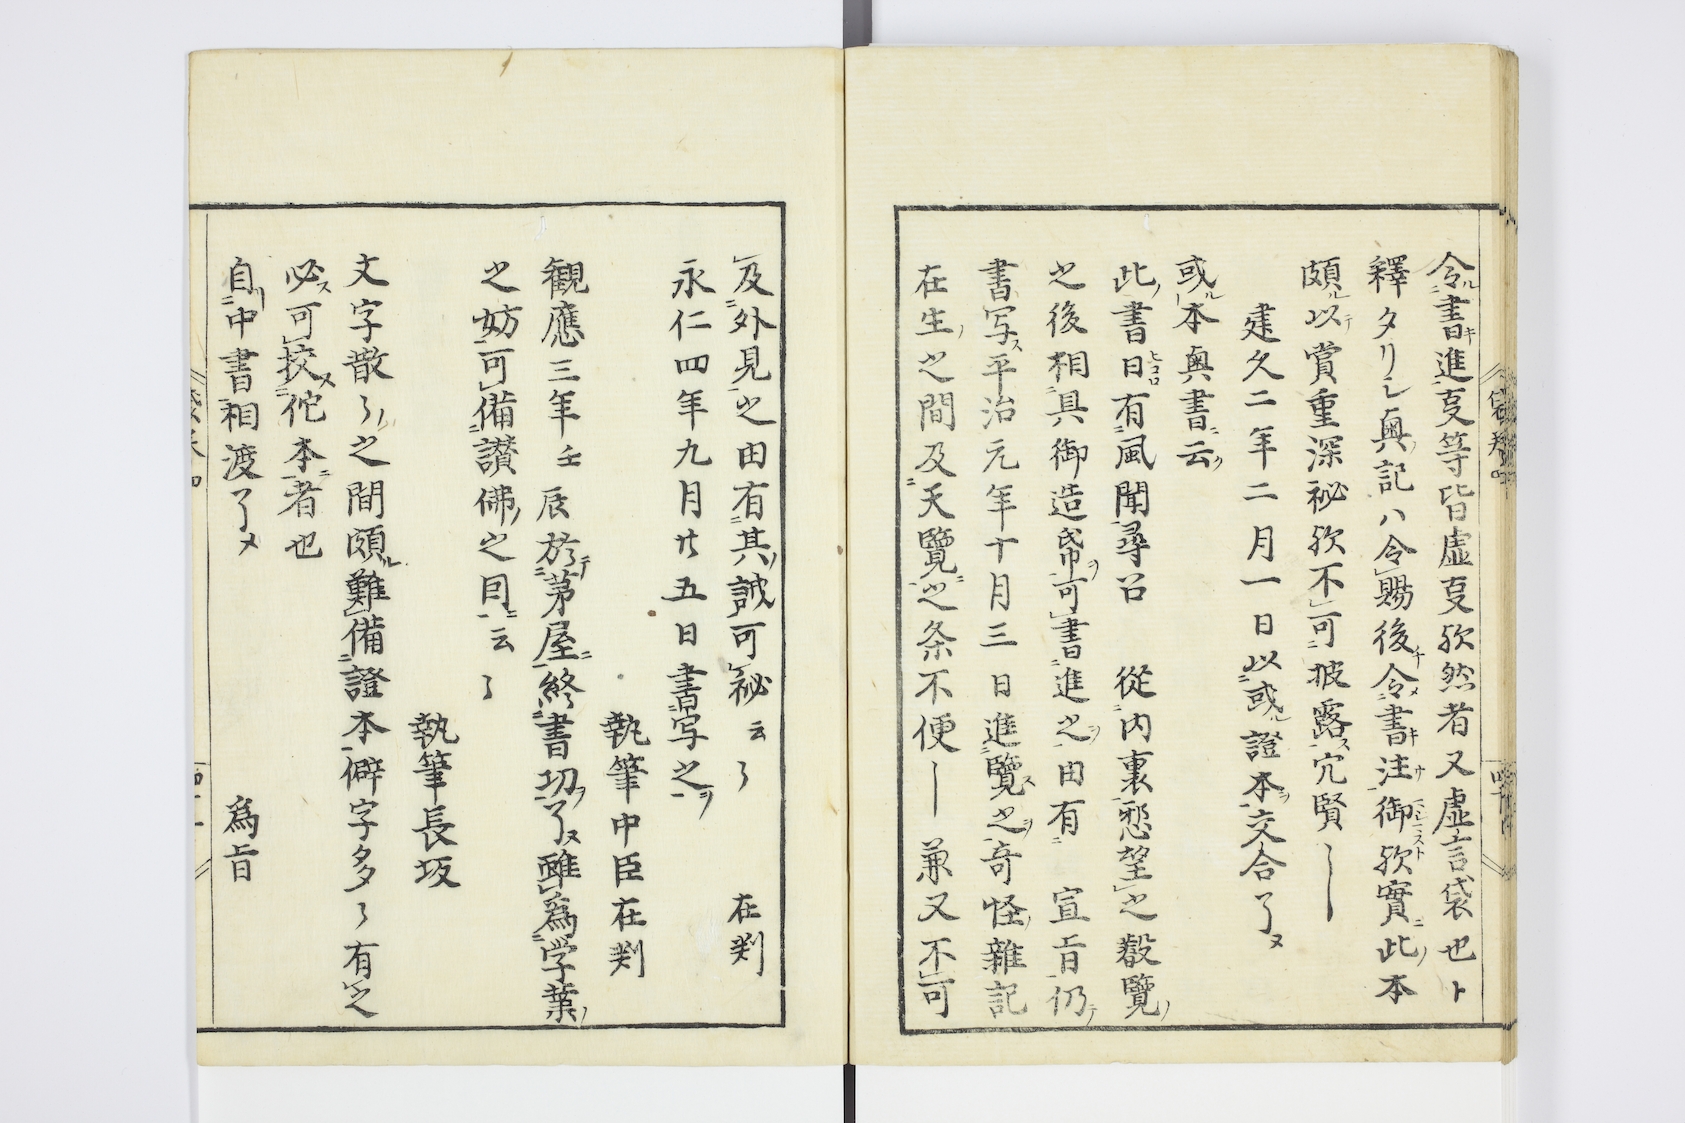 令書進叓等皆虚叓欤然者又虚言袋也ト
釋タリシ奥記ハ令賜後令書注御欤實此本
頗以賞重深祕欤不可披露穴賢〳〵
建久二年二月一日以或證本交合了
或本奥書云
此書日有風聞尋召　從内裏慇望之叡覽
之後相具御造帋可書進之由有　宣旨仍
書写平治元年十月三日進覽之奇怪雜記
在生之間及天覽之条不便〳〵兼又不可
及外見之由有其誡可祕云々　在判
永仁四年九月廿五日書写之
執筆中臣在判
觀應三年壬辰於茅屋終書切了雖爲学葉
之妨可備讃佛之因云々
執筆長坂
文字散々之間頗難備證本僻字多々有之
必可挍佗本者也
自中書相渡了　爲旨